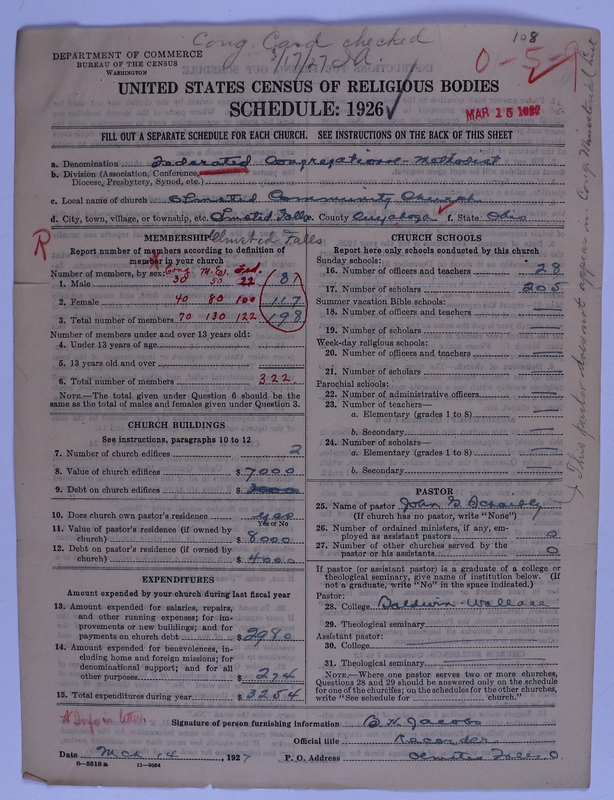 Cong. Card checked
3/17/27
108
DEPARTMENT OF COMMERCE
BUREAU OF THE CENSUS
WASHINGTON
UNITED STATES CENSUS OF RELIGIOUS BODIES
SCHEDULE: 1926
MAR 15 1927
FILL OUT A SEPARATE SCHEDULE FOR EACH CHURCH. SEE INSTRUCTIONS ON THE BACK OF THIS SHEET
a. Denomination Federated Congregational-Methodist
b. Division (Association, Conference, Diocese, Presbytery, Synod, etc.)
c. Local name of church Olmsted Community Church
d. City, town, village, or township, etc. Olmsted Falls e. County Cuyahoga f. State Ohio
Olmsted Falls
R
MEMBERSHIP
Report number of members according to definition of
member in your church
Number of members, by sex: Cong. M. E. Fed.
1. Male 30 50 22 81
2. Female 40 80 100 117
3. Total number of members 70 130 122 198
Number of members under and over 13 years old:
4. Under 13 years of age
5. 13 years old and over
6. Total number of members 322
NOTE.—The total given under Question 6 should be
same as the total of males and females given under Question 3.
CHURCH BUILDINGS
See instructions, paragraphs 10 to 12
7. Number of church edifices 2
8. Value of church edifices $ 7000
9. Debt on church edifices $
10. Does church own pastor's residence yes
Yes or No
11. Value of pastor's residence (if owned by
church) $ 8000
12. Debt on pastor's residence (if owned by
church) $ 4000
EXPENDITURES
Amount expended by your church during last fiscal year
13. Amount expended for salaries, repairs,
and other running expenses; for im-
provements or new buildings; and for
payments on church debt $ 2980
14. Amount expended for benevolences, in-
cluding home and foreign missions; for
denominational support; and for all
other purposes $ 274
15. Total expenditures during year $ 3254
CHURCH SCHOOLS
Report here only schools conducted by this church
Sunday schools:
16. Number of officers and teachers 28
17. Number of scholars 205
Summer vacation Bible schools:
18. Number of officers and teachers
19. Number of scholars
Week-day religious schools:
20. Number of officers and teachers
21. Number of scholars
Parochial schools:
22. Number of administrative officers
23. Number of teachers—
a. Elementary (grades 1 to 8)
b. Secondary
24. Number of scholars—
a. Elementary (grades 1 to 8)
b. Secondary
PASTOR
25. Name of pastor John
(If church has no pastor, write "None")
26. Number of ordained ministers, if any, em-
ployed as assistant pastors 0
27. Number of other churches served by the
pastor or his assistants 0
If pastor (or assistant pastor) is a graduate of a college or
theological seminary, give name of institution below. (If
not a graduate, write "No" in the space indicated.)
Pastor:
28. College Baldwin-Wallace
29. Theological seminary
Assistant pastor:
30. College
31. Theological seminary
NOTE.—Where one pastor serves two or more churches,
Questions 28 and 29 should be answered only on the schedule
for one of the churches; on the schedules for the other churches,
write "See schedule for church."
This pastor does not appear in Cong. Ministerial List
* Info in letter.
Signature of person furnishing information B. H. Jacobs
Official title Recorder
Date Mch 14, 1927 P. O. Address Olmsted Falls, O.
8—5518a 11—9084